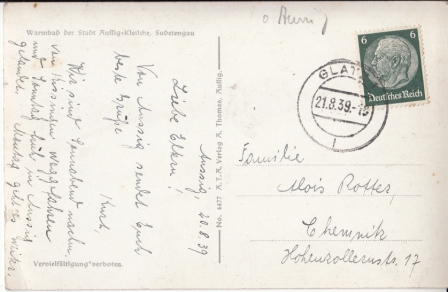 Warmbad der Stadt Aussig-Kleische, Sudetengau
o Aussig
6 6
Deutsches Reich
GLATZ
21.8.39.-
1
Aussig, 20.8.39
Liebe Eltern!
Von Aussig sendet Euch
beste Grüße
Kurt.
Wir sind Sonnabend
von
und Sonntag früh in Aussig
gelandet. Montag geht's weiter.
No. 6477 A.T.A. Verlag A. Thomas, Aussig.
Vervielfältigung verboten.
Familie
Alois Rotter,
Chemnitz
Hohenzollernstr. 17